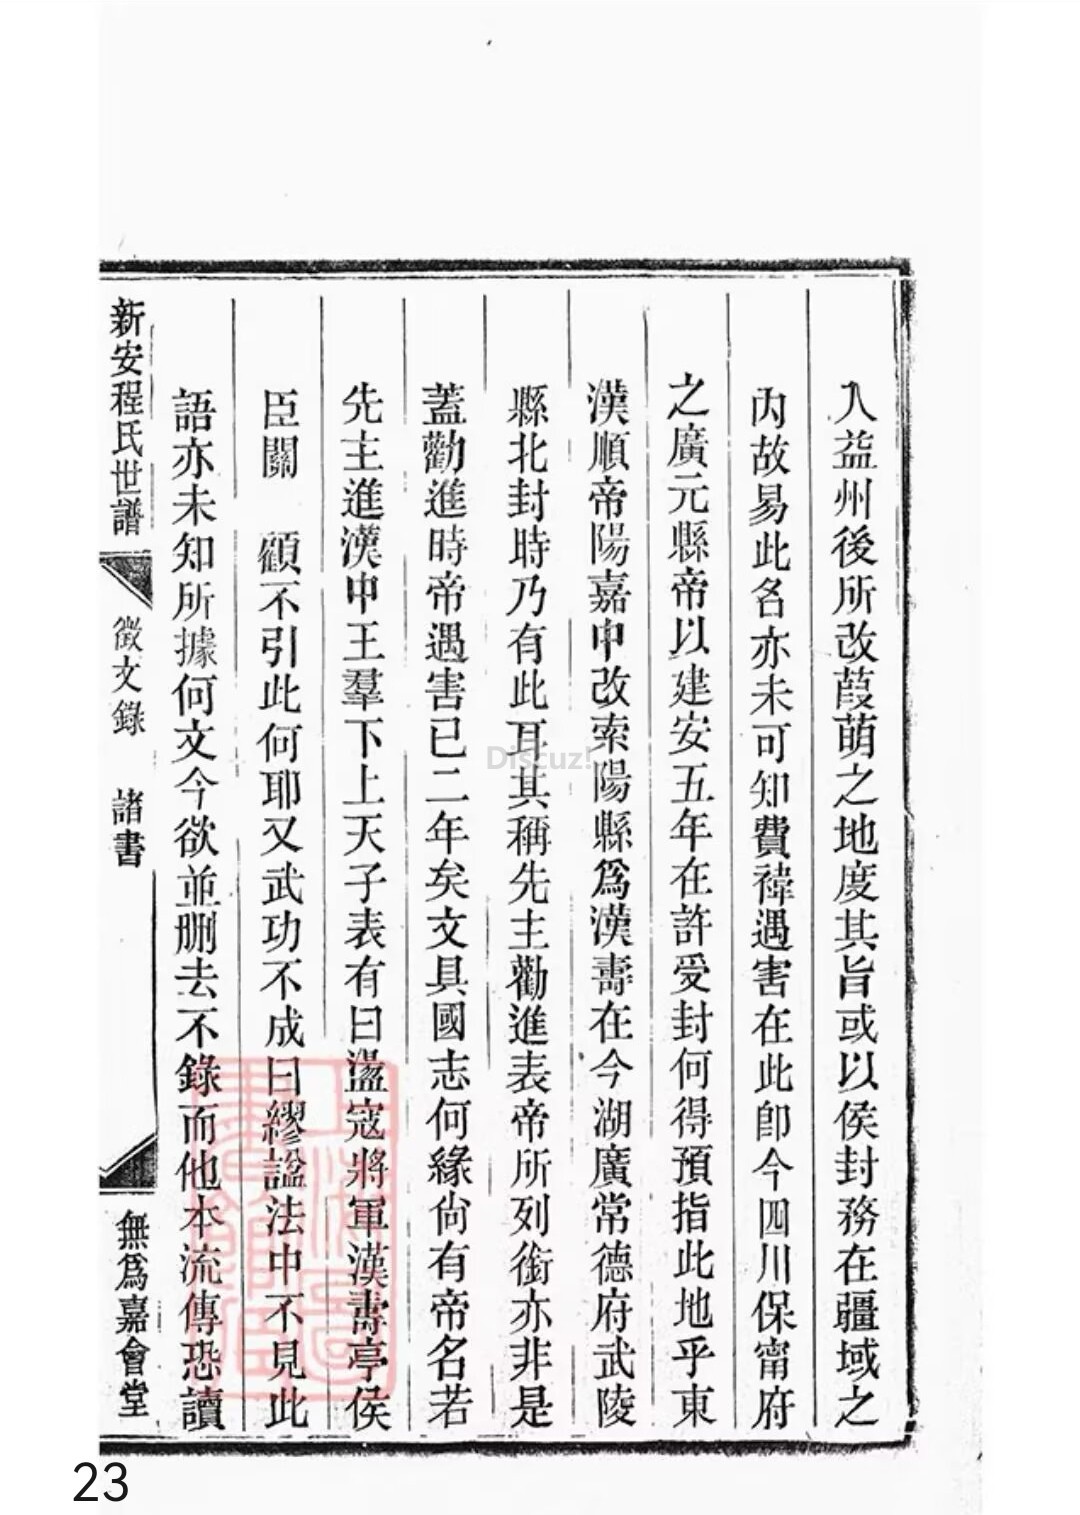 入益州後所改葭萌之地度其旨或以侯封務在疆域之
內故易此名亦未可知費禕遇害在此卽今四川保甯府
之廣元縣帝以建安五年在許受封何得預指此地乎東
漢順帝陽嘉中改索陽縣爲漢壽在今湖廣常德府武陵
縣北封時乃有此耳其稱先主勸進表帝所列銜亦非是
蓋勸進時帝遇害已二年矣文具國志何緣尙有帝名若
先主進漢中王羣下上天子表有曰盪寇將軍漢壽亭侯
臣關　顧不引此何耶又武功不成曰繆諡法中不見此
語亦未知所據何文今欲並刪去不錄而他本流傳恐讀
新安程氏世譜　徵文錄　諸書　無爲嘉會堂
Discuz!
23